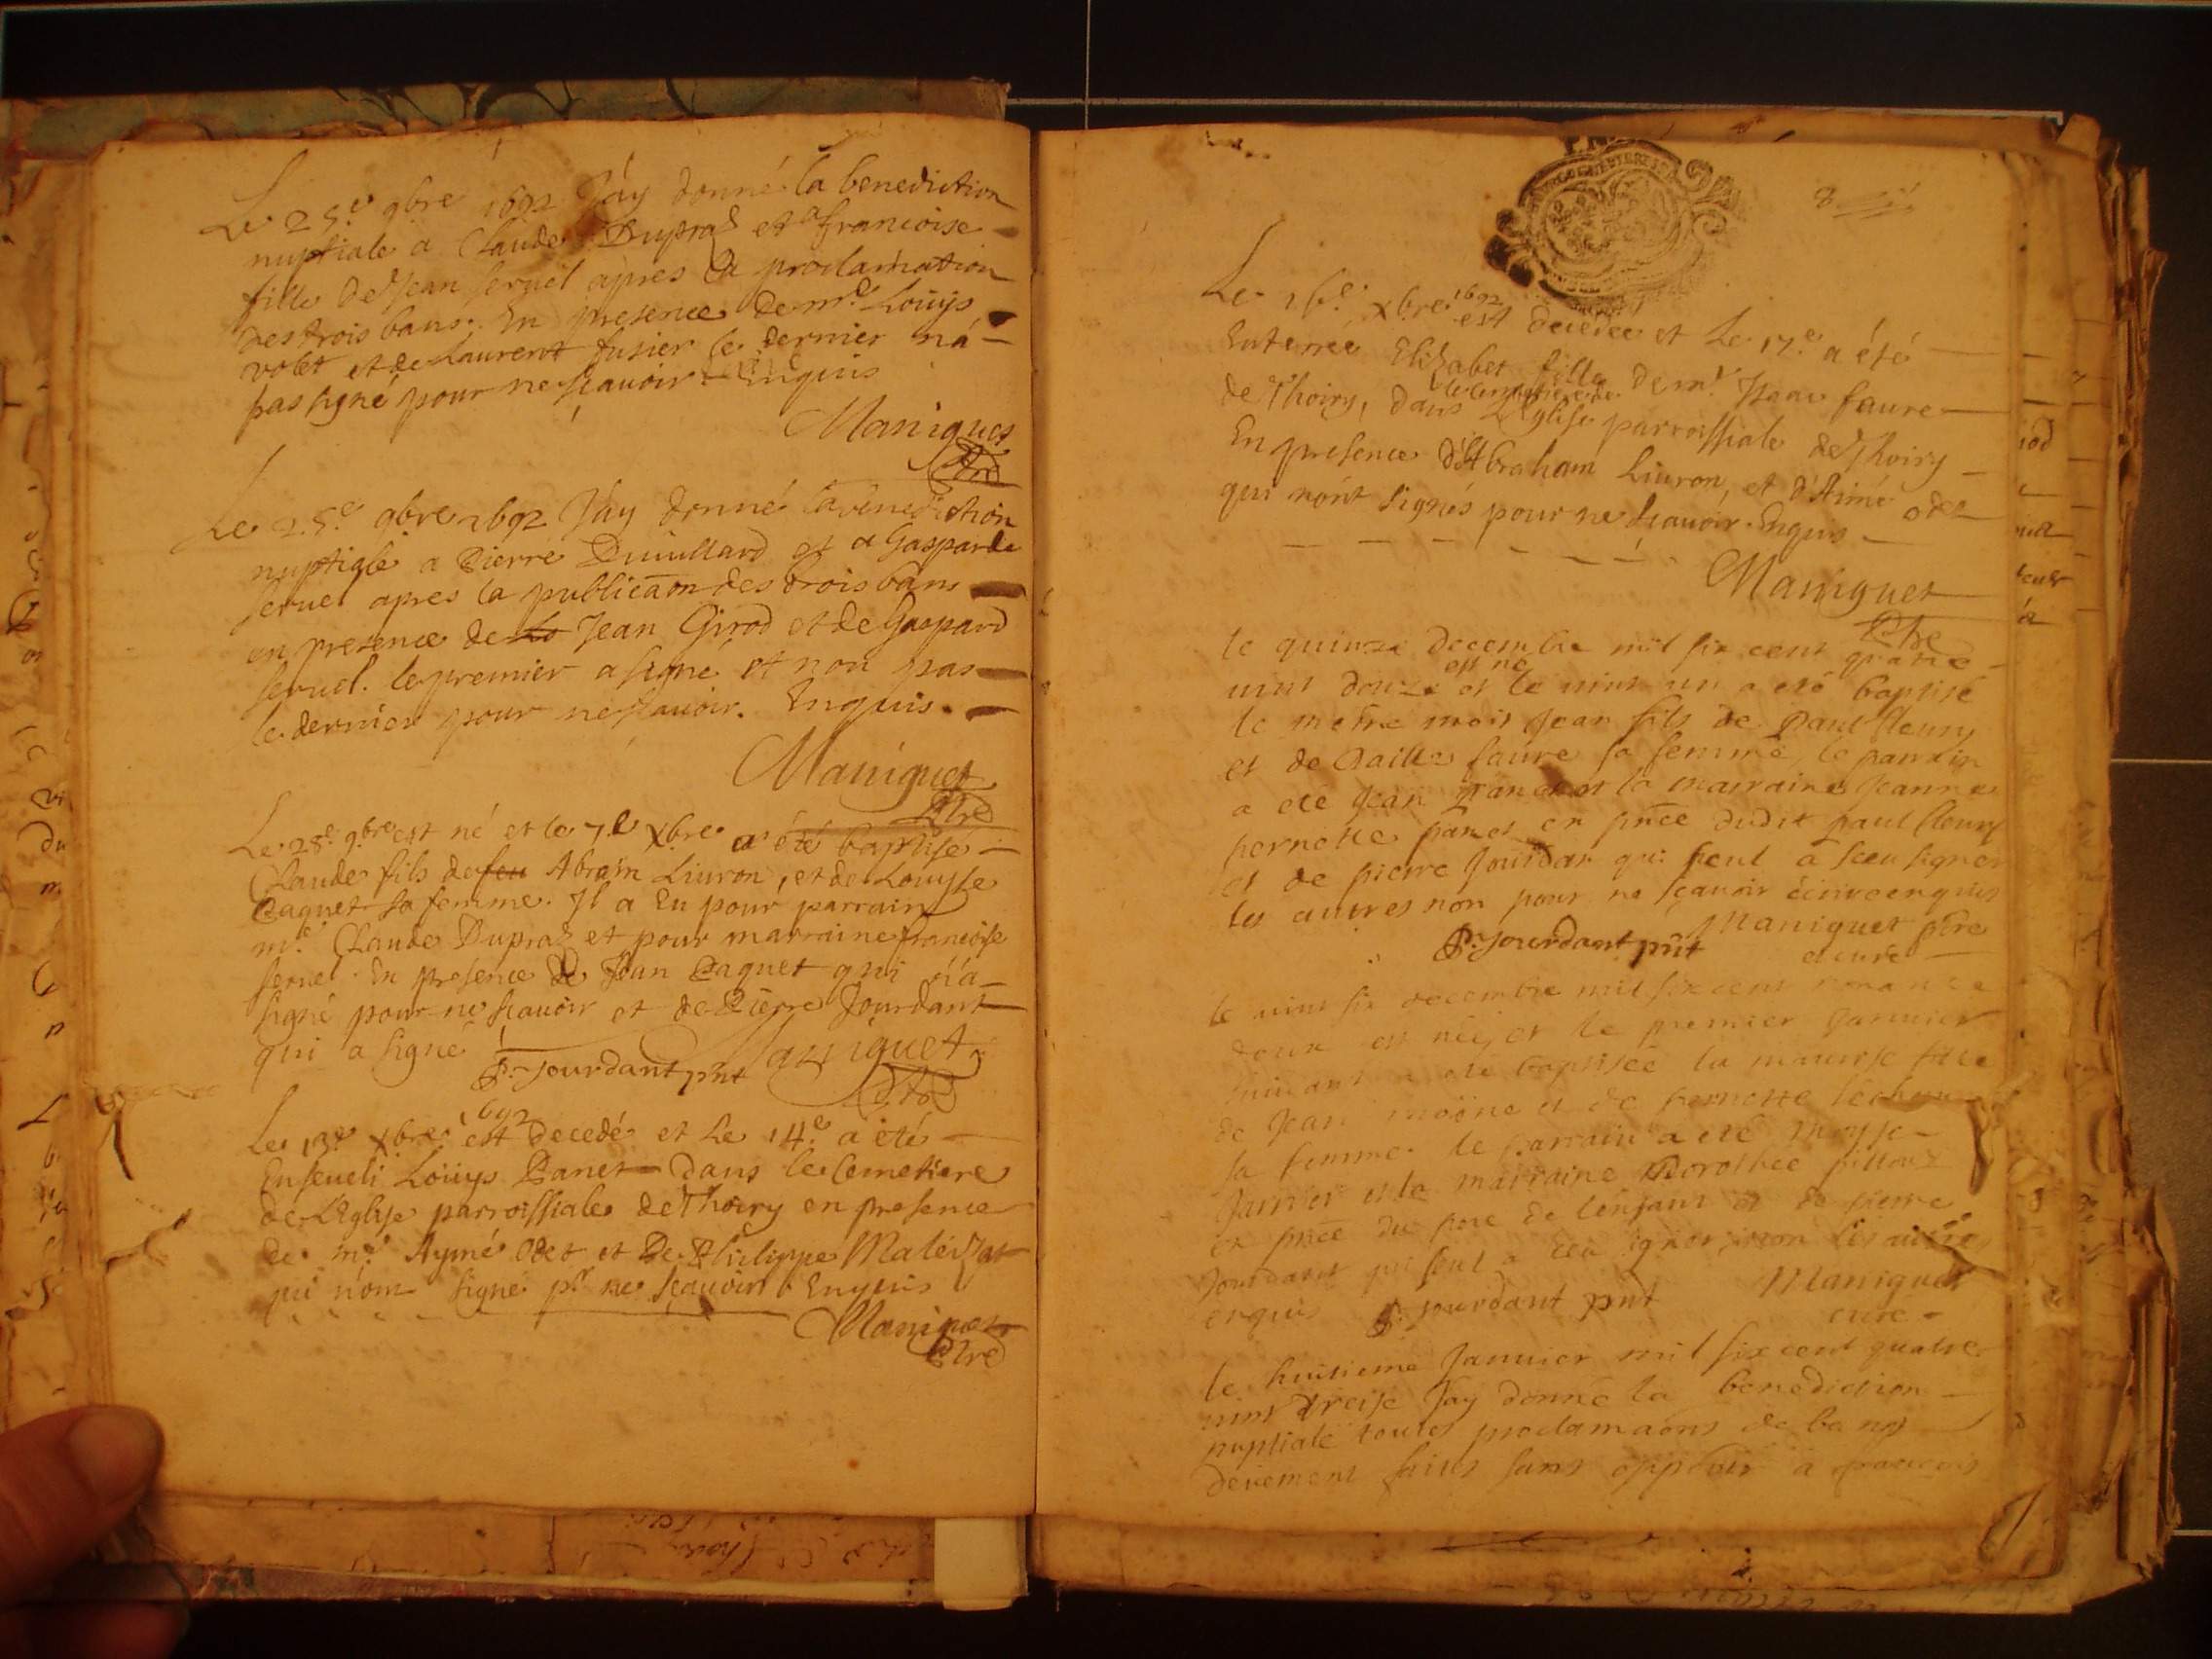 Le 25.e 9bre 1692 J'ay donné la benediction
nuptiale a Claude Dupraz et a francoise
fille de Jean seruel apres la proclamation
des trois bans. En presence de mre Louys
volet et de Laurent fusier le dernier n'a
pas signé pour ne scauoir Enquis
Maniguet
Ptre
Le 25.e 9bre 1692 J'ay donné la benediction
nuptiale a Pierre Duuillard et a Gasparde
seruel apres la publicaon des trois bans
en presence de Jean Girod et de Gaspard
seruel. le premier a signé et non pas
le dernier pour ne scauoir. Enquis.
Maniguet
Ptre
Le 28.e 9bre est né et le 7.e Xbre a été baptisé
Claude fils de feu Abram Liuron, et de Louyse
Paquet sa femme. Il a Eu pour parrain
mre Claude Dupraz et pour marraine francoise
seruel. En presence de Jean Paquet qui n'a
signé pour ne scauoir et de Pierre Jourdant
qui a signé
P. Jourdant pnt Maniguet
Ptre
Le 13.e Xbre 1692 est decedé et Le 14.e a été
Enseueli Louys Panet dans le Cemetiere
de L'Eglise parroissiale de Thoiry en presence
de mre Aymé Odet et De Philippe
qui n'ont signé pr ne scauoir Enquis
Maniguet
Ptre
8
Le 16.e Xbre 1692 est decedee et Le 17.e a été
Enterrée Elizabet fille de mr. Isaac faure
de Thoiry, dans le cemetiere de L'Eglise parroissiale de Thoiry
En presence d'Abraham Liuron, et d'Aimé odet
qui n'ont signés pour ne scauoir. Enquis
Maniguet
Ptre
le quinze decembre mil six cent quatre
uint douze est né et le uint un a eté baptisé
le mesme mois Jean fils de Paul fleury
et de faure sa femme, le parrain
a eté Jean et la marraine Jeanne
pernette panet en pnce dudit paul fleury
et de pierre Jourdan qui seul a sceu signer
les autres non pour ne scauoir écrire enquis
Maniguet ptre
P. Jourdant pnt et curé
le uint six decembre mil six cent nonante
deux est née, et le premier Januier
suiuant a eté baptisée la maurise fille
de Jean moöne et de pernette
sa femme. le parrain a eté moyse
Januier et la marraine Dorothée
en pnce du pere de l'enfant et de pierre
Jourdant qui seul a sceu signer, non les autres
enquis P. Jourdant pnt Maniguet
curé
le huitieme Januier mil six cent quatre
uint treise J'ay donné la benediction
nuptiale toutes proclamaons de bans
deuement faites sans a francois